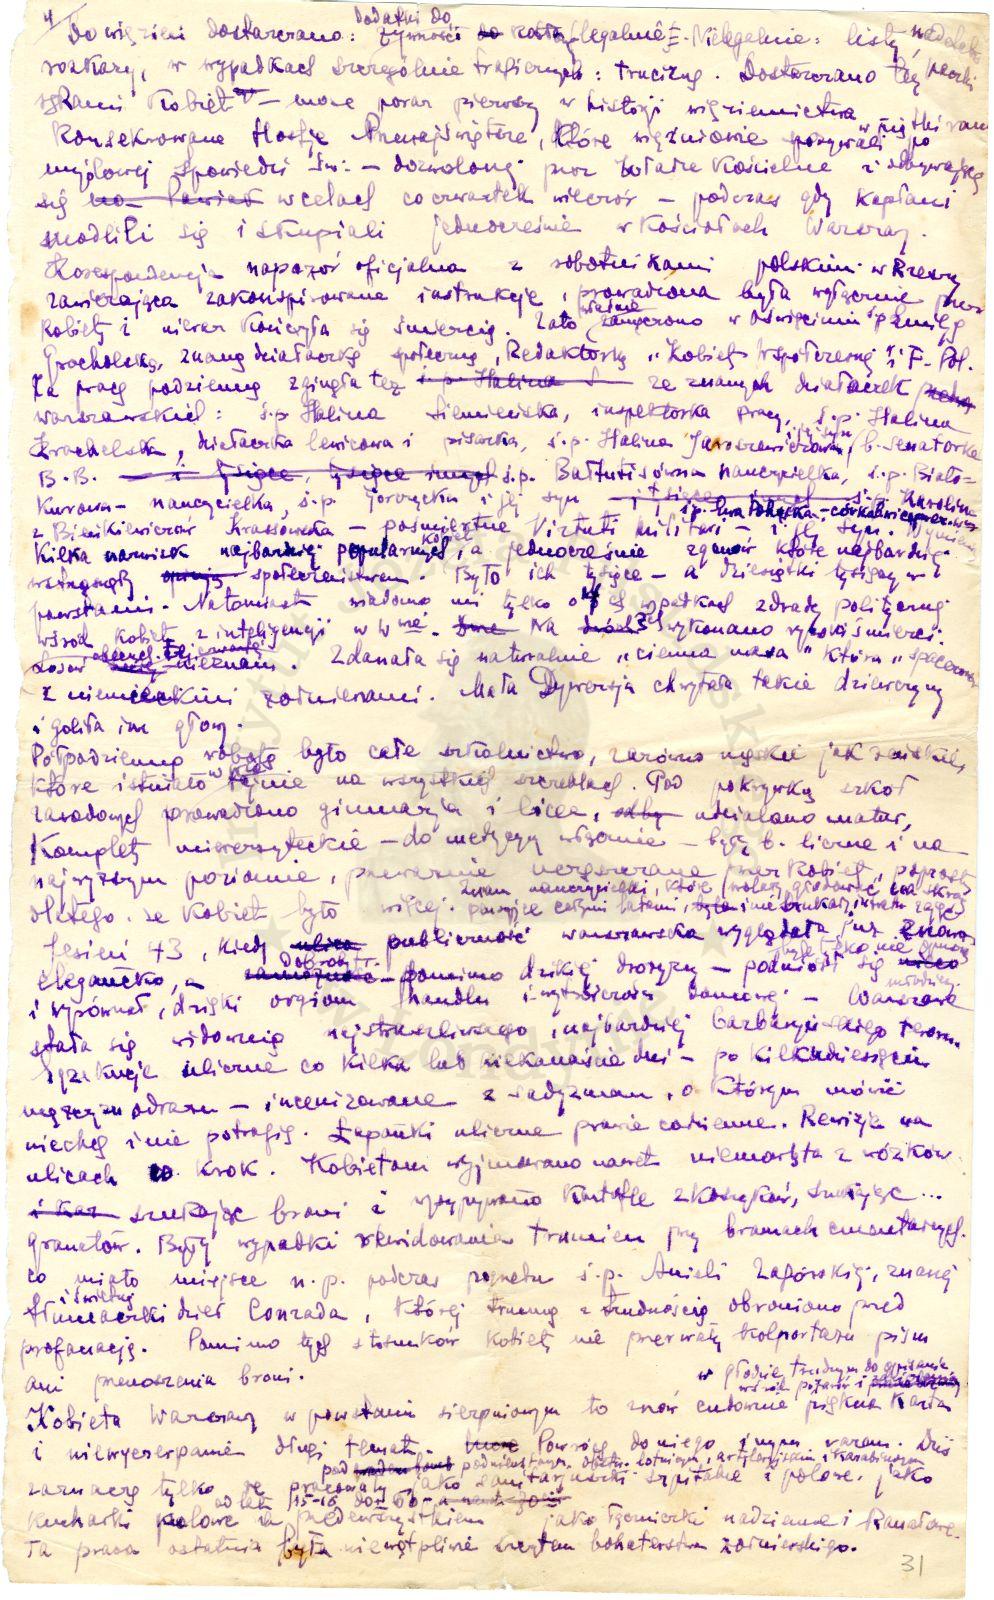 4/
Do więzień dostarczano: żywności dodatki do kotła /legalnie/. Nielegalnie: listy,
rozkazy, w wypadkach szczególnie tragicznych: truciznę. Dostarczano też
rękami kobiet – może poraz pierwszy w historji więziennictwa
Konsekrowane Hostje Przenajświętsze, które więźniowie pożywali po
myślowej spowiedzi św: – dozwolonej przez Władze Kościelne i odbywającej
się na Pawiak w celach co czwartek wieczór – podczas gdy kapłani
modlili się i skupiali jednocześnie w kościołach Warszawy.
Korespondencja napozór oficjalna z robotnikami polskimi w Rzeszy
zawierająca zakonspirowane instrukcje, prowadzona była wyłącznie przez
kobiety i nieraz kończyła się śmiercią. Zato właśnie zamęczono w Oświęcimiu
Grocholską, znaną działaczkę społeczną, Redaktorkę „Kobiety Współczesnej" i F. Pol.
Za pracę podziemną zginęła też ś.p. Halina ze znanych działaczek
warszawskich: ś.p. Halina Siemieńska, inspektorka pracy, ś.p. Halina
Krachelska, działaczka lewicowa i pisarka, ś.p. Halina Jaroszewiczowa i jej syn, b. senatorka
B.B. i tysiące, tysiące innych ś.p. Bałtutisówna nauczycielka, ś.p. Biało-
kurowa – nauczycielka, ś.p. i jej syn – i tysiące innych ś.p. Karolina
z Krassowska – pośmiertne Virtuti militari – i jej syn.
Kilka nazwisk najbardziej popularnych kobiet, a jednocześnie zgonów które najbardziej
wstrząsnęły opinją społeczeństwem. Było ich tysiące – a dziesiątki tysięcy w
powstaniu. Natomiast wiadomo mi tylko o 4ch wypadkach zdrady politycznej
wśród kobiet z inteligencji w W-wie. Na 3ch wykonano wyroki śmierci.
Losów obecnych tej czwartej nieznam. Zdarzała się naturalnie „ciemna masa" która „spacerowała"
z niemieckimi żołnierzami. Mała Dywersja chwytała takie dziewczyny
i goliła im głowy.
Półpodziemną robotą było całe szkolnictwo, zarówno męskie jak żeńskie,
które istniało w kraju tajnie na wszystkich szczeblach. Pod pokrywką szkół
zawodowych prowadzono gimnazja i licea, udzielano matur,
Komplety uniwersyteckie – do medycyny włącznie – były b. liczne i na
najwyższym poziomie, przeważnie uczęszczane przez kobiety, poprostu
dlatego, że kobiet było więcej. Znam nauczycielki, które wolały głodować
Jesień 43, kiedy ulica publiczność warszawska wyglądała już znowu
elegancko, a zamożność dobrobyt – pomimo dzikiej drożyzny – podniósł się nieco
i wyrównał, dzięki orgiom handlu i wytwórczości domowej – Warszawa
stała się widownią najstraszliwszego, najbardziej barbarzyńskiego terroru.
Egzekucje uliczne co kilka lub kilkanaście dni – po kilkudziesięciu
mężczyzn odrazu – inscenizowane z sadyzmem, o którym mówić
niechcę i nie potrafię. Łapanki uliczne prawie codzienne. Rewizje na
ulicach co krok. Kobietom wyjmowano nawet niemowlęta z wózków
i kaz szukając broni i wysypywano kartofle z koszyków, szukając...
granatów. Były wypadki rewidowania trumien przy bramach cmentarnych.
co miało miejsce n.p. podczas pogrzebu ś.p. Anieli Zagórskiej, znanej
i świetnej tłumaczki dzieł Conrada, której trumnę z trudnością obroniono przed
profanacją. Pomimo tych stosunków kobiety nie przerwały kolportażu pism
ani przenoszenia broni.
Kobieta Warszawy w powstaniu sierpniowym to znów cudownie piękna karta
i niewyczerpanie długi temat. Powrócę do niego innym razem. Dziś
zaznaczę tylko że pracowały jako sanitarjuszki szpitalne i polowe, jako
kucharki polowe a przedewszystkiem od lat 15-16 do 60 jako łączniczki nadziemne i kanałowe.
Ta praca ostatnia była niewątpliwie szczytem bohaterstwa żołnierskiego.
31